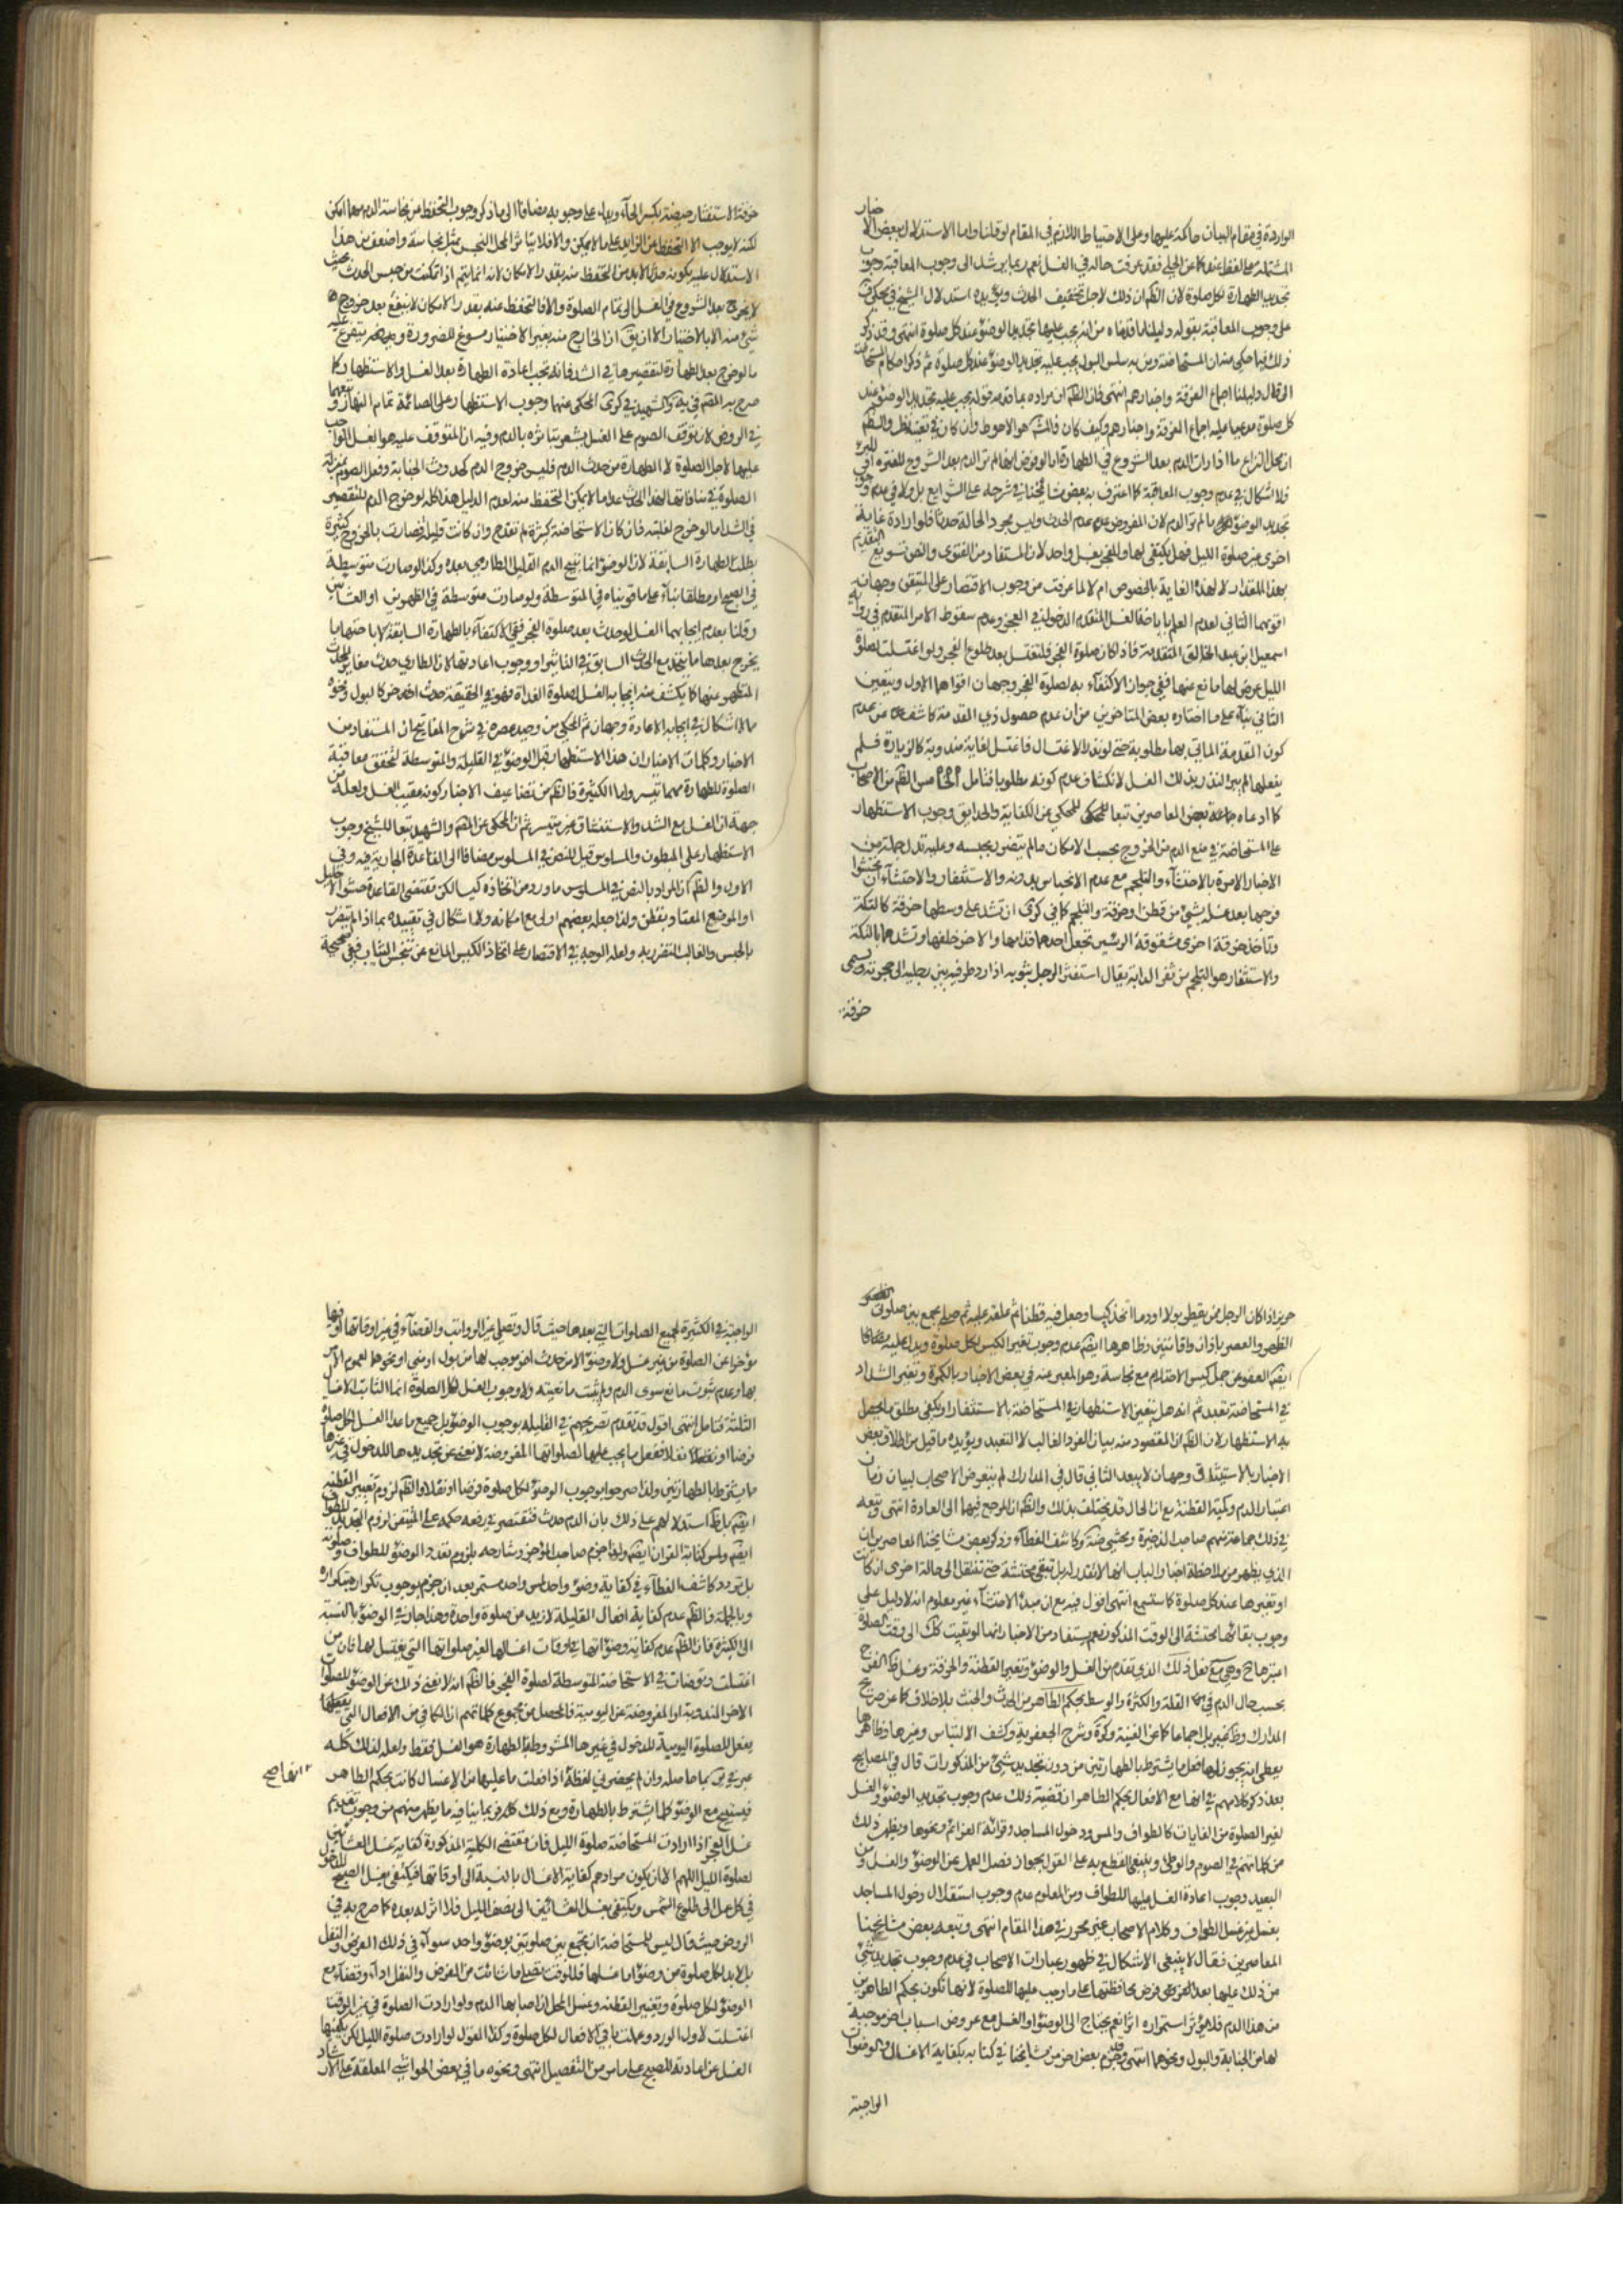 الواردة في مقام البيان حاكمة عليها وعلى الاحتياط اللازم في المقام لو قلنا واما الاستدلال ببعض الاخبار
المشتملة على الغسل عند كذا عن الحلي فقد عرفت حاله في الغسل نعم ربما يرشد الى وجوب المعاقبة وجوب
تجديد الطهارة لكل صلوة لان الظم ان ذلك لاجل تخفيف الحدث ويؤيده استدلال الشيخ في محكي ف
على وجوب المعاقبة بقوله دليلنا ما قدمناه من انه يجب عليها تجديد الوضوء عند كل صلوة انتهى وقد ذكر
ذلك فيما حكي عنه ان المستحاضة ومن به سلس البول يجب عليه تجديد الوضوء عند كل صلوة ثم ذكر احكام المستحاضة
الى قال دليلنا اجماع الفرقة واخبارهم انتهى فان الظم ان مراده بما قدمه قوله يجب عليه تجديد الوضوء عند
كل صلوة مدعيا عليه اجماع الفرقة واخبارهم وكيف كان فالمش هو الاحوط وان كان في تعينه نظر والظم
ان محل النزاع ما اذا رات الدم بعد الشروع في الطهارة اما لو فرض انها لم تر الدم بعد الشروع للفترة او للبرء
فلا اشكال في عدم وجوب المعاقبة كما اعترف به بعض مشايخنا في شرحه على الشرايع بل ولا في عدم وجوب
تجديد الوضوء ما لم تر الدم لان المفروض عدم الحدث وليس مجرد الحالة حدثا فلو ارادة غاية
اخرى غير صلوة الليل فهل يكتفي لها وللفجر بغسل واحد لان المستفاد من الفتوى والنص تسويغ التقديم
بهذا المقدار لا لهذه الغاية بالخصوص ام لا لما عرفت من وجوب الاقتصار على المتيقن وجهان
اقويهما الثاني لعدم العلم باباحة الغسل المتقدم الدخول في الفجر وعدم سقوط الامر المتقدم في رواية
اسمعيل بن عبد الخالق المتقدمة فاذا كان صلوة الفجر فلتغتسل بعد طلوع الفجر ولو اغتسلت لصلوة
الليل عرض لها مانع عنها ففي جواز الاكتفاء به لصلوة الفجر وجهان اقواهما الاول ويتعين
الثاني بناء على ما اختاره بعض المتاخرين من ان عدم حصول ذي المقدمة كاشف عن عدم
كون المقدمة الماتي بها مطلوبة حتى لو نذر الاغتسال فاغتسل لغاية مندوبة كالزيارة فلم
يفعلها لم يبر النذر بذلك الغسل لانكشاف عدم كونه مطلوبا فتامل الخامس الظم من الاصحاب
كما ادعاه جماعة بعض المعاصرين تبعا للمحكي عن الكفاية والحدايق وجوب الاستظهار
على المستحاضة في منع الدم من الخروج بحسب الامكان ما لم يتضرر بحبسه وعليه تدل جملة من
الاخبار الامرة بالاحتشاء والتلجم مع عدم الانحباس بدونه والاستثفار والاحتشاء ان تحشوا
فرجها بعد غسله بشيء من قطن او خرقة والتلجم كما في كرى ان تشد على وسطها خرقة كالتكة
وتاخذ خرقة اخرى مشقوقة الراسين تجعل احدهما قدامها والاخر خلفها وتشدهما بالتكة
والاستثفار هو التلجم من ثفر الدابة يقال استثفر الرجل بثوبه اذا رد طرفيه بين رجليه الى حجزته ويسمى
خرقة
خرقة الاستثفار حيضة بكسر الحاء ويدل على وجوبه مضافا الى ما ذكر وجوب التحفظ من نجاسة الدم مهما امكن
لكنه لا يوجب الا التحفظ عن الزايد على ما لا يمكن والا فلا يتاثر المحل النجس بمثل نجاسة واضعف من هذا
الاستدلال عليه بكونه حدثا لا بد من التحفظ منه بقدر الامكان لانه انما يتم اذا تمكنت من حبس الحدث بحيث
لا يخرج بعد الشروع في الغسل الى تمام الصلوة والا فالتحفظ عنه بقدر الامكان لا ينفع بعد خروج
شيء منه الا بالاختيار الا ان يق ان الخارج منه بغير الاختيار مسوغ للضرورة وعلى كل يتفرع عليه
ما لو خرج بعد الطهارة لتقصيرها في الشد فانه يجب اعادة الطهارة بعد الغسل والاستظهار كما
صرح به المقم في يه والشهيد في كرى المحكي عنهما وجوب الاستظهار على الصائمة تمام النهار وتبعهما
في الروض لان توقف الصوم على الغسل يشعر بتاثره بالدم وفيه ان المتوقف عليه هو الغسل الواجب
عليها لاجل الصلوة لا الطهارة من حدث الدم فليس خروج الدم كحدوث الجنابة وفعل الصوم بمنزلة
الصلوة في منافاتها لهذا الحدث عدا ما لا يمكن التحفظ منه لعدم الدليل هذا كله لو خرج الدم للتقصير
في الشد اما لو خرج لغلبته فان كان الاستحاضة كثيرة لم تقدح وان كانت قليلة فصارت بالخروج كثيرة
بطلت الطهارة السابقة لان الوضوء انما يبيح الدم القليل الطاري بعده وكذا لو صارت متوسطة
في الصبح او مطلقا بناء على ما قويناه في المتوسطة ولو صارت متوسطة في الظهرين او العشائين
وقلنا بعدم ايجابهما الغسل لو حدث بعد صلوة الفجر ففي الاكتفاء بالطهارة السابقة لاباحتها ما
يخرج بعدها ما يتحد مع الحدث السابق في التاثير او وجوب اعادتها لان الطاري حدث مغاير للحدث
المتطهر عنها كما يكشف عنه ايجابه الغسل لصلوة الغداة فهو في الحقيقة حدث اخر كالبول ونحوه
مما لا اشكال في ايجابه الاعادة وجهان ثم المحكي من وحيد عصره في شرح المفاتيح ان المستفاد من
الاخبار وكلمات الاخيار ان هذا الاستظهار قبل الوضوء في القليلة والمتوسطة لتحقق معاقبة
الصلوة للطهارة مهما تيسر واما الكثيرة فالظم من تضاعيف الاخبار كونه عقيب الغسل ولعله من
جهة ان الغسل مع الشد والاستثفار غير متيسر ثم ان المحكي عن المقم والشهيد تبعا للشيخ وجوب
الاستظهار على المبطون والمسلوس قيل للنص في المسلوس مضافا الى القاعدة الجارية فيه وفي
الاول والظم ان المراد بالنص في المسلوس ما ورد من اتخاذه كيسا لكن مقتضى القاعدة حشو الاحليل
او الموضع المعتاد بقطن ولذا جعله بعضهم اولى مع امكانه ولا اشكال في تقييده بما اذا لم يتضرر
بالحبس والغالب التضرر به ولعله الوجه في الاقتصار على اتخاذ الكيس المانع عن تنجس الثياب ففي صحيحة
حريز اذا كان الرجل ممن يقطر بولا او دما اتخذ كيسا وجعل فيه قطنا ثم علقه عليه ثم صلى يجمع بين صلوتي
الظهر والعصر باذان واقامتين وظاهرها ايضم عدم وجوب تغيير الكيس لكل صلوة ويدل عليه مضافا
في المستحاضة تعبد ثم انه هل يتعين الاستظهار في المستحاضة بالاستثفار او يكفي مطلق ما يحصل
به الاستظهار لان الظم ان المقصود منه بيان الفرد الغالب لا التعبد ويؤيده ما قيل من اطلاق بعض
الاخبار بالاستيثاق وجهان لا يبعد الثاني قال في المدارك لم يتعرض الاصحاب لبيان زمان
اعتبار الدم وكمية القطنة مع ان الحال قد يختلف بذلك والظم ان المرجع فيها الى العادة انتهى وتبعه
في ذلك جماعة منهم صاحب الذخيرة ومحشي ضة وكاشف الغطاء وذكر بعض مشايخنا المعاصرين ان
الذي يظهر من ملاحظة اخبار الباب انها لا تقدر له بل تبقى محتشية حتى تنتقل الى حالة اخرى ان كانت
او تغيرها عند كل صلوة كما ستسمع انتهى اقول فيه مع ان مبدء الاحتشاء غير معلوم انه لا دليل على
وجوب بقائها محتشية الى الوقت المذكور نعم يستفاد من الاخبار انها لو بقيت كك الى وقت الصلوة
اعتبرها ح وهي مع فعل ذلك الذي تقدم من الغسل والوضوء وتغيير القطنة والخرقة وغسل ظ الفرج
بحسب حال الدم في القلة والكثرة والوسط بحكم الطاهر من الحدث والخبث بلا خلاف كما عن صريح
المدارك وظ غيره بل اجماعا كما عن الغنية وكرة وشرح الجعفرية وكشف الالتباس وغيرها وظاهرها
يعطي انه يجوز لها فعل ما يشترط بالطهارتين من دون تجديد شيء من المذكورات قال في المصابيح
بعد ذكر كلامهم في انها مع الافعال بحكم الطاهر ان قضية ذلك عدم وجوب تجديد الوضوء والغسل
لغير الصلوة من الغايات كالطواف والمس ودخول المساجد وقرائة العزائم ونحوها ويظهر ذلك
من كلماتهم في الصوم والوطي وينبغي القطع به على القول بجواز فصل العمل عن الوضوء والغسل ومن
البعيد وجوب اعادة الغسل عليها للطواف ومن المعلوم عدم وجوب استقلال دخول المساجد
بغسل غير غسل الطواف وكلام الاصحاب غير محرر في هذا المقام انتهى وتبعه بعض مشايخنا
المعاصرين فقال لا ينبغي الاشكال في ظهور عبارات الاصحاب في عدم وجوب تجديد شيء
من ذلك عليها بعد فرض محافظتها على ما وجب عليها للصلوة لانها تكون بحكم الطاهر من
من هذا الدم فلا يؤثر استمراره اثرا نعم يحتاج الى الوضوء او الغسل مع عروض اسباب اخر موجبة
لها من الجنابة والبول ونحوهما انتهى وجزم بعض اخر من مشايخنا في كتابه بكفاية الاغسال والوضوءات
الواجبة
الواجبة في الكثيرة لجميع الصلوات التي بعدها حيث قال وتصلي غير الرواتب والقضاء في غير اوقاتها او فيها
مؤخرا عن الصلوة من غير غسل ولا وضوء الا من حدث اخر موجب لها من بول او مني او نحوهما لعموم الامر
بها وعدم ثبوت مانع سوى الدم ولم يثبت مانعيته ولا وجوب الغسل لكل الصلوة انما الثابت الاغسال
الثلثة فتامل انتهى اقول قد تقدم تصريحهم في القليلة بوجوب الوضوء بل جميع ما عدا الغسل لكل صلوة
فرضا او نفلا ففعل ما يجب عليها لصلواتها المفروضة لا تغني عن تجديدها للدخول في غيرها
مما يشترط بالطهارتين ولذا صرحوا بوجوب الوضوء لكل صلوة فرضا او نفلا والظم لزوم تغيير القطنة
ايضم بل ظ استدلالهم على ذلك بان الدم حدث فتقتصر في رفعه حكمه على المتيقن لزوم التجديد للطواف
ايضم ولمس كتابة القران ايضم ولذا جزم صاحب الموجز وشارحه بلزوم تعدد الوضوء للطواف وصلوته
بل تردد كاشف الغطاء في كفاية وضوء واحد لمس واحد مستمر بعد ان جزم بوجوب تكراره بتكراره
وبالجملة فالظم عدم كفاية افعال القليلة لازيد من صلوة واحدة وهذا جار في الوضوء بالنسبة
الى الكثيرة فان الظم عدم كفاية وضوءاتها في اوقات اغسالها لغير صلواتها التي يغتسل لها فان من
اغتسلت وتوضات في الاستحاضة المتوسطة لصلوة الفجر فالظم انه لا يغني ذلك عن الوضوء للصلوات
الاخر المندوبة او المفروضة غير اليومية فالمحصل من مجموع كلماتهم ان الكافي من الافعال التي يفعلها
يفعل للصلوة اليومية للدخول في غيرها المشروطة بالطهارة هو الغسل فقط ولعله لذلك كله
عبر في ئق بما حاصله وان لم يحضرني لفظه اذا فعلت ما عليها من الاغسال كانت بحكم الطاهر
انتهى صح
فيستبيح مع الوضوء كلما يشترط بالطهارة ومع ذلك كله فربما ينافيه ما يظهر منهم من وجوب تقديم
غسل الفجر اذا ارادت المستحاضة صلوة الليل فان مقتضى الكلية المذكورة كفاية غسل العشائين
لصلوة الليل اللهم الا ان يكون مرادهم كفاية الاغسال بالنسبة الى اوقاتها فيكتفي بغسل الصبح للدخول
في كل عمل الى طلوع الشمس ويكتفي بغسل العشائين الى نصف الليل فلا اثر له بعده كما صرح به في
الروض حيث قال ليس للمستحاضة ان تجمع بين صلوتين بوضوء واحد سواء في ذلك الفرض والنفل
بل لا بد لكل صلوة من وضوء اما غسلها فللوقت تصلي ما شائت من الفرض والنفل اداء وقضاء مع
الوضوء لكل صلوة وتغيير القطنة وغسل المحل ان اصابها الدم ولو ارادت الصلوة في غير الوقت
اغتسلت لاول الورد وعملت باقي الافعال لكل صلوة وكذا القول لو ارادت صلوة الليل لكن يكفيها
الغسل عن اعادته للصبح على ما مر من التفصيل انتهى ونحوه ما في بعض الحواشي المعلقة على الارشاد